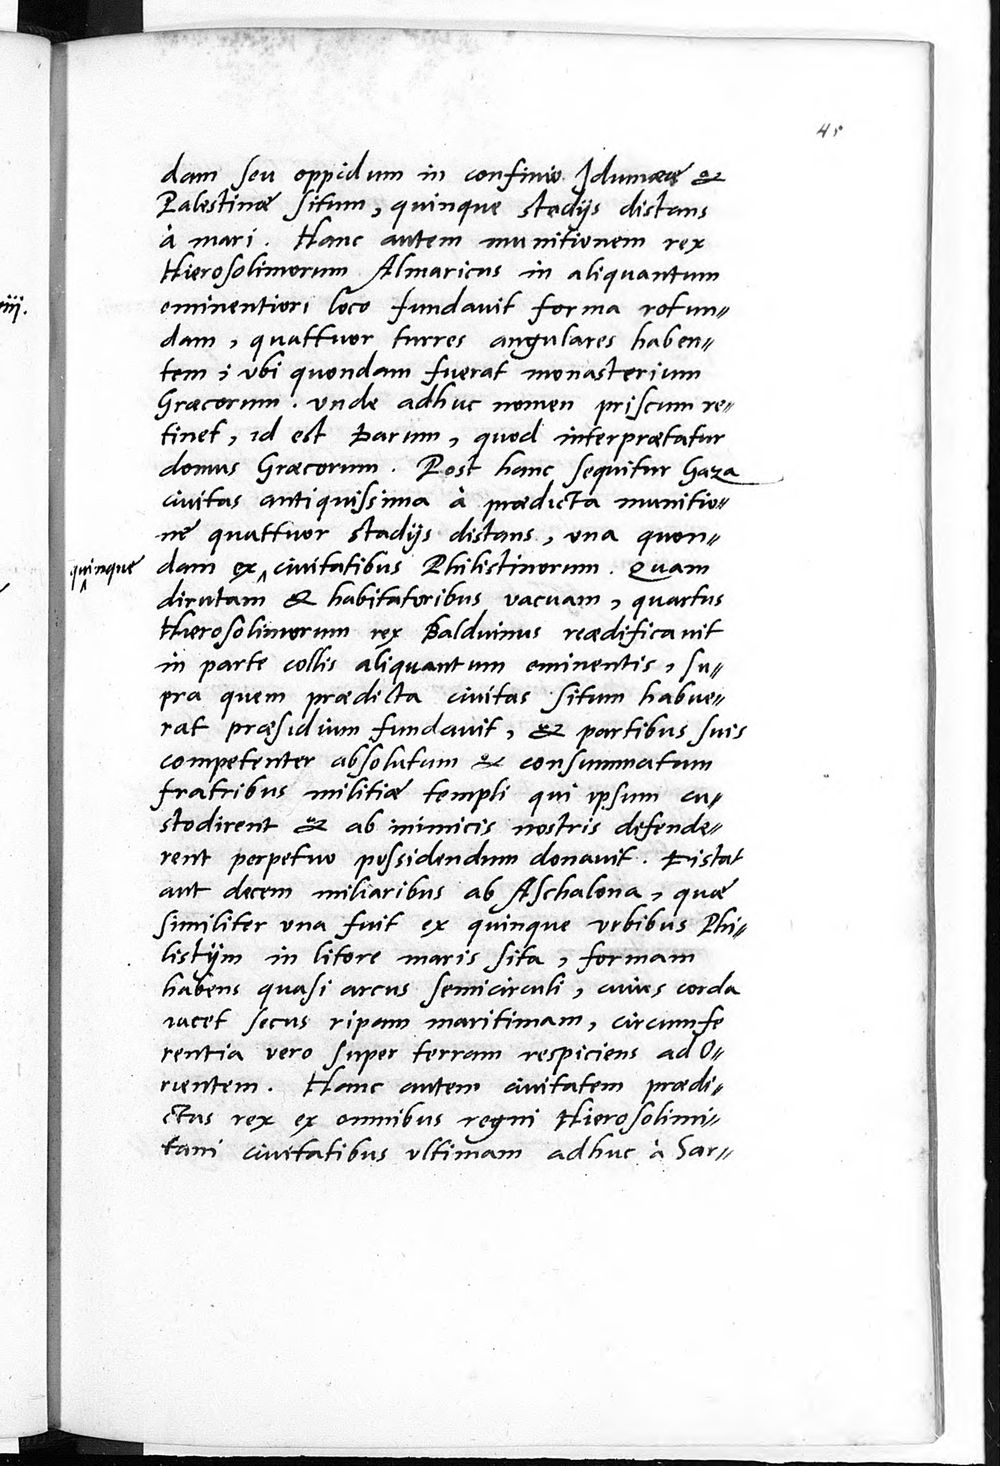 45
dam seu oppidum in confinio Idumææ &
Palestinæ situm, quinque stadijs distans
à mari. Hanc autem munitionem rex
Hierosolimorum Almaricus in aliquantum
eminentiori loco fundavit forma rotun=
dam, quattuor turres angulares haben=
tem; ubi quondam fuerat monasterium
Græcorum. unde adhuc nomen priscum re=
tinet, id est Darum, quod interprætatur
domus Græcorum. Post hanc sequitur Gaza
civitas antiquissima à prædicta munitio=
ne quattuor stadijs distans, una quon=
quinque
dam ex ‸ civitatibus Philistinorum. Quam
dirutam & habitatoribus vacuam, quartus
Hierosolimorum rex Balduinus reædificavit
in parte collis aliquantum eminentis, su=
pra quem prædicta civitas situm habue=
rat præsidium fundavit, & partibus suis
competenter absolutum & consummatum
fratribus militiæ templi qui ipsum cu=
stodirent & ab inimicis nostris defende=
rent perpetuo possidendum donavit. Distat
aut decem miliaribus ab Aschalona, quæ
similiter una fuit ex quinque urbibus Phi=
listijm in litore maris sita, formam
habens quasi arcus semicirculi, cuius corda
iacet secus ripam maritimam, circumfe
rentia vero super terram respiciens ad O=
rientem. Hanc autem civitatem prædi=
ctus rex ex omnibus regni Hierosolimi=
tani civitatibus ultimam adhuc à Sar=
iiij.